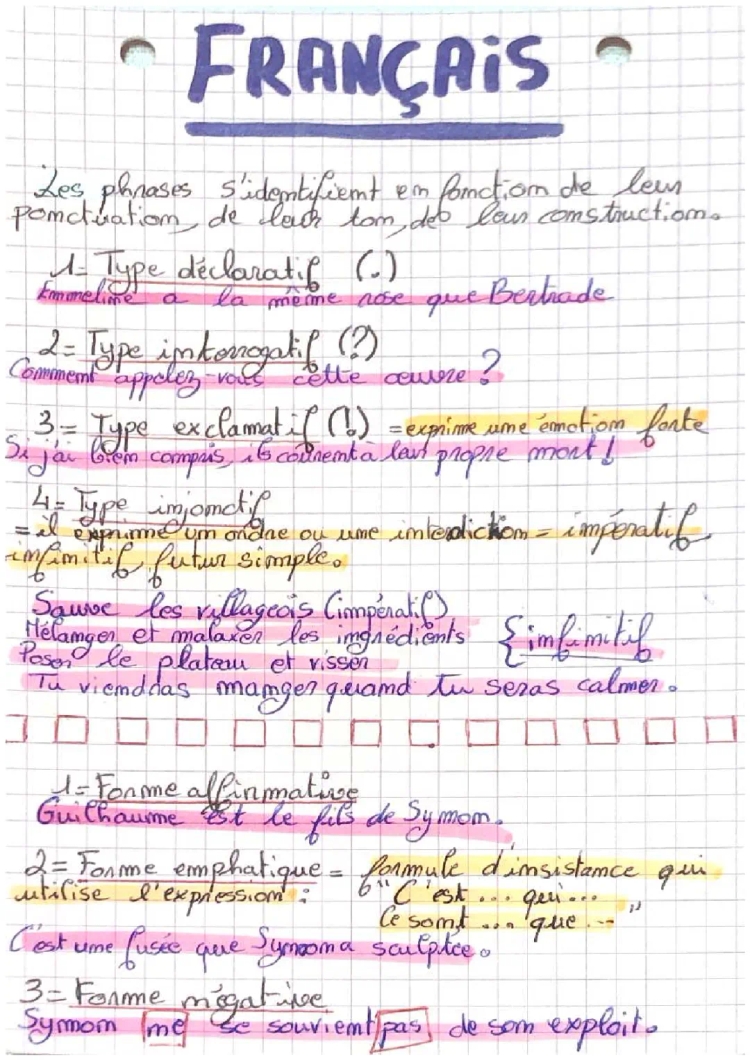 FRANÇAiS
Les phrases s'identifient en fonction de leur
ponctuation, de leur ton, de leur construction.
1- Type déclaratif (.)
Emmeline a la même rose que Bertrade
2= Type interrogatif (?)
Comment appelez-vous cette œuvre ?
3= Type exclamatif (!) = exprime une émotion forte
Si j'ai bien compris, ils courent à leur propre mort !
4= Type injonctif
= il exprime un ordre ou une interdiction = impératif,
infinitif, futur simple.
Sauve les villageois (impératif)
Mélanger et malaxer les ingrédients
Poser le plateau et visser
{infinitif
Tu viendras manger quand tu seras calmer.
1= Forme affirmative
Guilhaume est le fils de Symon.
2= Forme emphatique = formule d'insistance qui
utilise l'expression : "C'est ... qui...
Ce sont ... que ... "
C'est une fusée que Symon a sculptée.
3= Forme négative
Symon ne se souvient pas de son exploit.